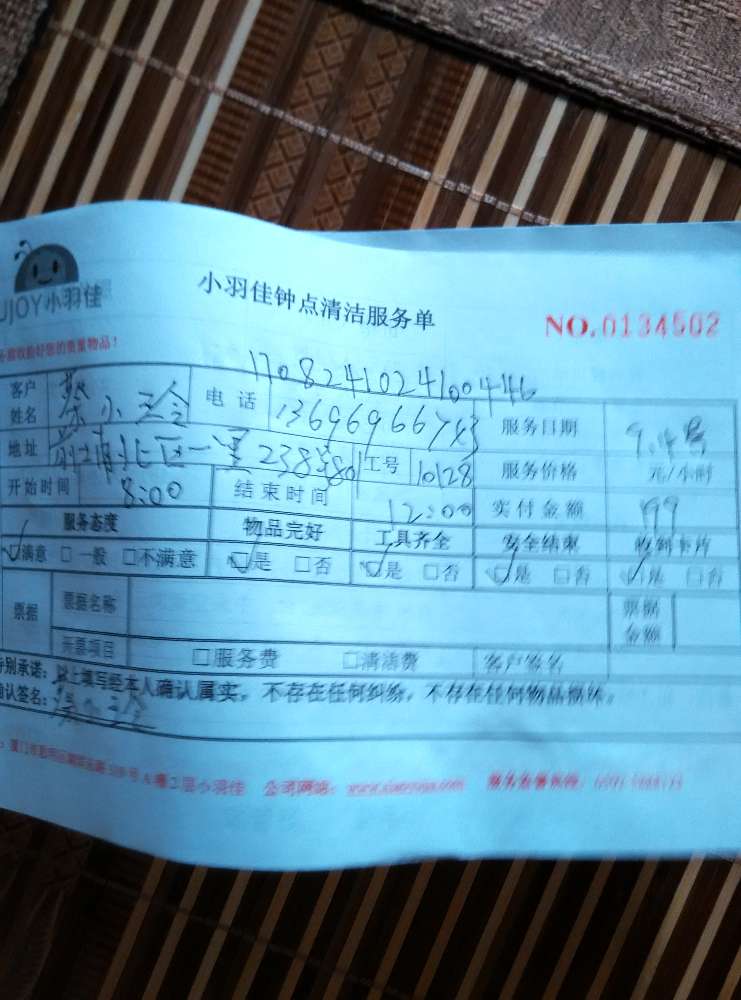 UJOY小羽佳
小羽佳钟点清洁服务单
NO.0134502
收拾好您的贵重物品！
1708241024100446
客户姓名 蔡小玲 电话 13696966743 服务日期 9.14号
地址 前埔北区一里238号 工号 10128 服务价格 元/小时
开始时间 8:00 结束时间 12:00 实付金额 199
服务态度 物品完好 工具齐全 安全结束 收到卡片
☑满意 □一般 □不满意 ☑是 □否 ☑是 □否 ☑是 □否 ☑是 □否
票据 票据名称 票据金额
开票项目 □服务费 □清洁费 客户签名
特别承诺：以上填写经本人确认属实，不存在任何纠纷，不存在任何物品损坏。
确认签名：
号A幢2层小羽佳 公司网站： 服务监督热线：